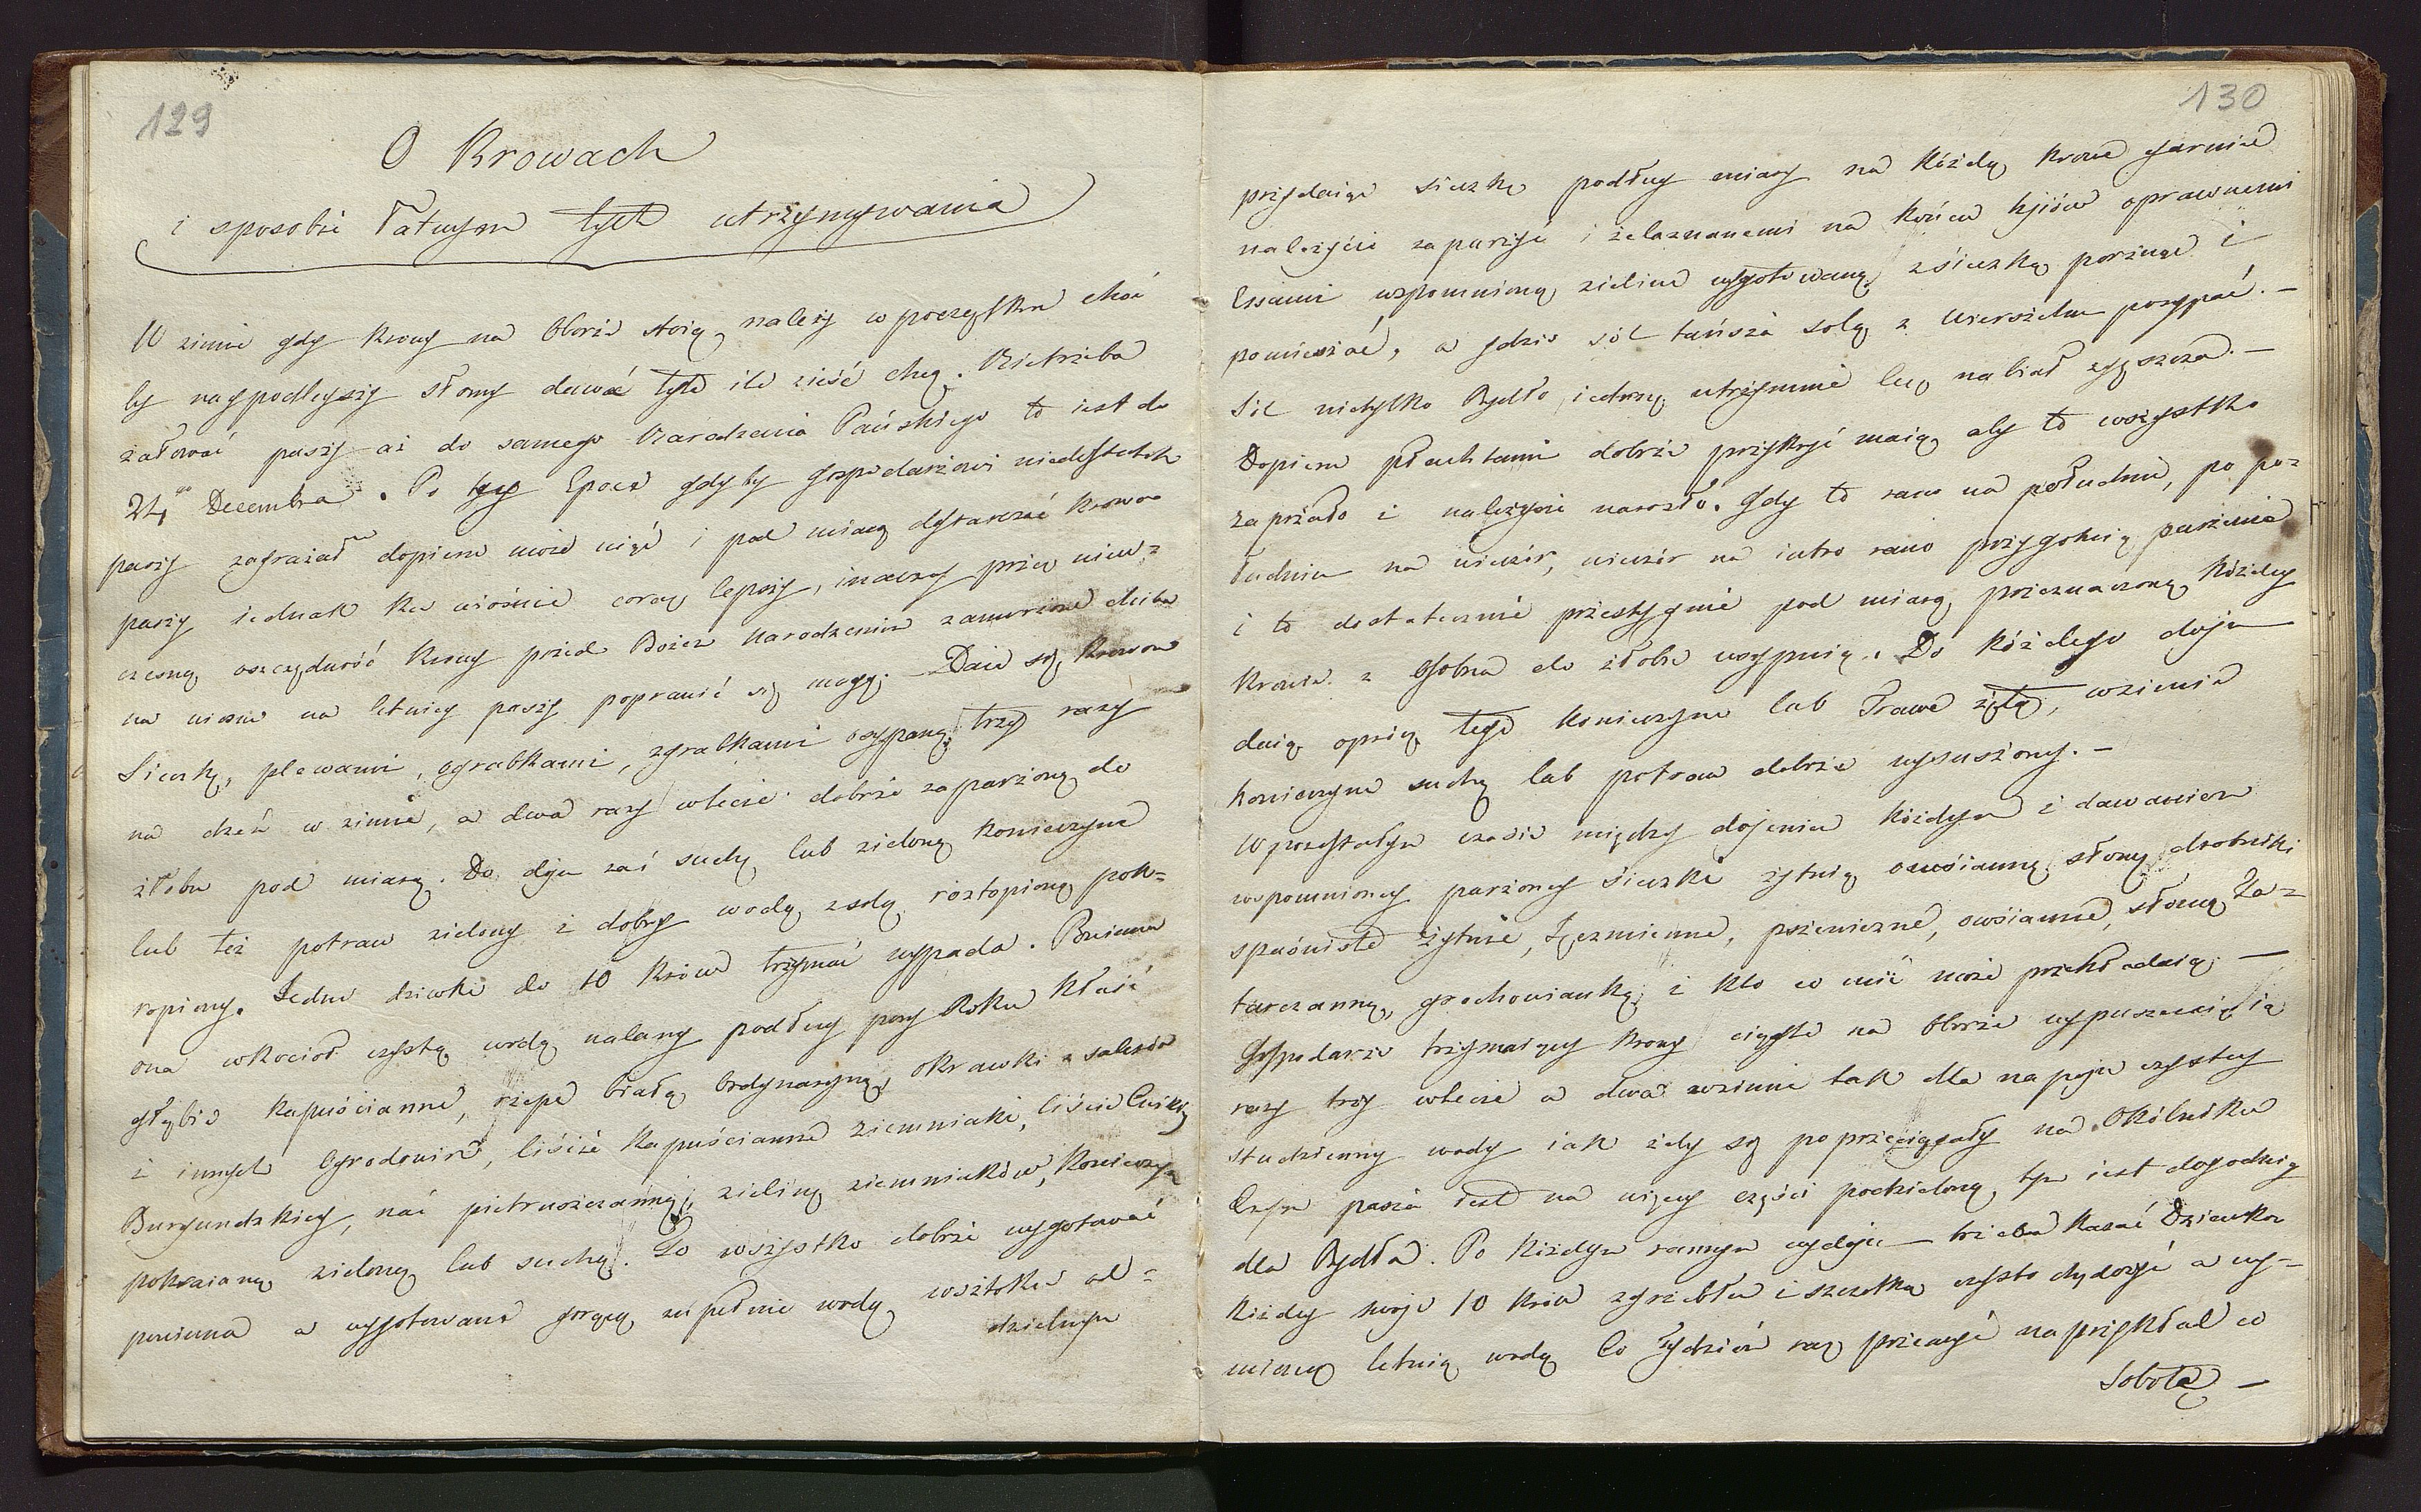 129
O Krowach
i sposobie łatwym tych utrzymywania
W zimie gdy krowy na oborze stoią należy w początku choć
by naypodleyszy słomy dawać tyle ile zieść chcą. Nietrzeba
żałować paszy aż do samego Narodzenia Pańskiego to iest do
24go Decembra. Po tey Epoce gdyby Gospodarzowi niedostatek
paszy zagrażał dopiero może nią i pod miarą dostarczać krowom
paszy iednak ku wiośnie coraz lepszy, inaczey przez niew=
czesną oszczędność krowy przed Bożem Narodzeniem zamorzone chiba
na nowo na letniey paszy poprawić się mogą. Daie się krowom
Sieczkę, plewami, ograbkami, zgrabkami osypaną trzy razy
na dzeń w zimie, a dwa razy wlecie dobrze zaparzoną do
żłobu pod miarą. Do doju zaś suchą lub zieloną koniczynę
lub też potraw zielony i dobry wodą zsolą roztopioną pok=
ropiony. Jedne dziewke do 10 krów trzymać wypada. Powinna
ona wkocioł czystą wodą nalany podług pory Roku kłaść
głąbie kapuścianne, rzepe białą ordynaryiną, okrawki z sałatów
i innych Ogrodowin, liście kapuścianne ziemniaki, liście Cwikły
Burgundzkiey, nać pietruszczanną, zieline ziemniaków, koniczyn
pokraianą zieloną lub suchą. To wszystko dobrze wygotować
powinna a wygotowane gorącą zupełnie wodą wsztoku od=
dzielnym
130
przydaiąc sieczkę podług miary na każdą krowe garnie
należycie zaparzyć i żelaznanemi na końcu kjiów oprawnemi
Essami wspomnioną zieline wygotowaną zsieczką porznąć i
pomieszać, a gdzie sól tańsza solą z wierszchu posypać. —
Sól nietylko Bydło iedrzy utrzymuie lecz nabiał zgęszcza. —
Dopiero płachtami dobrze przykryć maią aby to wszystko
zaprzało i należycie narosło. Gdy to rano na południe, po po=
łudniu na wieczór, wieczór na iutro rano przygotuią parzenie
i to dostatecznie przestygnie pod miarą przeznaczoną każdey
krowie z osobna do żłobu wsypuią. Do każdego doju
daią oprócz tego koniczyne lub Trawe żętą, wzimie
koniczyne suchą lub potraw dobrze wysuszony. —
W pozostałym czasie między dojeniem każdym i dawaniem
wspomnioney parzoney sieczki żytnią owsianną słomę drobniki
spaśniste żytnie, Jęczmienne, pszeniczne, owsianne, słomą Ta=
tarczanną, grochowianką i kto co mieć może przekładaią. —
Gospodarze trzymaiący krowy ciągle na oborze wypuszczaią ią
razy trzy wlecie a dwa wzimie tak dla napoju czystey
studzienny wody iak żeby się poprzeciągały na Okólniku
Czym pasza iest na więcey części podzieloną tym iest dogodnią
dla Bydła. Po każdym rannym wydoju — trzeba kazać Dziewkom
każdey swoje 10 krów zgrzebłem i szczotką czysto chędożyć a wy=
mioną letnią wodą Co Tydzień raz przemyć naprzykład co
Sobotę —